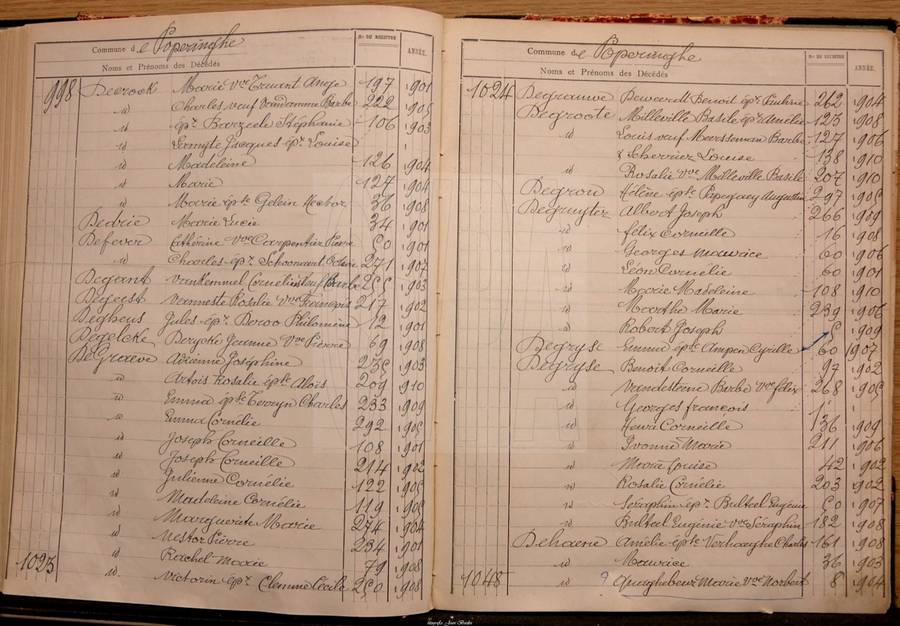 Commune de Poperinghe
Nos DU REGISTRE
ANNÉE.
Noms et Prénoms des Décédés
998 Dewock Marie Vve Truant Ange 197 1901
id Charles veuf Vandamme Barbe 222 1905
id épx Barzeele Stéphanie 106 1903
id Jacques épx Louise
id Madeleine 126 1904
id Marie 127 1904
id Marie épse Gelein Hector 36 1908
Dedrie Marie Lucie 34 1901
Defever Cathérine Vve Carpentier Pierre 50 1901
id Charles épx Schoonaert Octavie 271 1907
Degant Vankemmel Cornelius veuf Barbe 255 1903
Degeest Vanneste Rosalie Vve François 217 1902
Degheus Jules épx Deroo Philomène 12 1901
Degelcke Berycke Jeanne Vve Pierre 69 1908
DeGraeve Adrienne Joséphine 235 1903
id Artois Rosalie épse Aloïs 209 1910
id Emma épse Terryn Charles 233 1909
id Emma Cornélie 292 1905
id Joseph Corneille 108 1901
id Joseph Corneille 214 1902
id Julienne Cornélie 122 1905
id Madeleine Cornélie 119 1905
id Marguerite Marie 274 1904
id Nestor Pierre 234 1901
id Rachel Marie 79 1908
1023 id Victorin épx Clemme Cécile 250 1908
Commune de Poperinghe
Nos DU REGISTRE
ANNÉE.
Noms et Prénoms des Décédés
1024 Degrauwe Benoit épx 262 1904
Degroote Milleville Basile épx Amélie 123 1908
id Louis veuf Meersseman Barbe 127 1906
id Scherrier Louise 138 1910
id Rosalie Vve Milleville Basile 207 1910
Degrou Hélène épse Augustin 297 1905
Degruyter Albert Joseph 266 1909
id Félix Corneille 16 1908
id Georges Maurice 60 1906
id Léon Cornélie 60 1901
id Marie Madeleine 108 1910
id Marthe Marie 239 1906
id Robert Joseph 5 1909
Degryse Emma épse Ampen Cyrille 60 1907
Degryse Benoit Corneille 97 1902
id Vandestrene Barbe Vve Félix 268 1905
id Georges François 1
id Henri Corneille 136 1909
id Yvonne Marie 211 1906
id Marie Louise 42 1902
id Rosalie Cornélie 203 1902
id Séraphin épx Bulteel Eugénie 50 1907
id Bulteel Eugénie Vve Séraphin 182 1908
Dehaene Amélie épse Verhaeghe Charles 161 1908
id Maurice 36 1903
1048 id ? Quaghebeur Marie Vve Norbert 8 1904